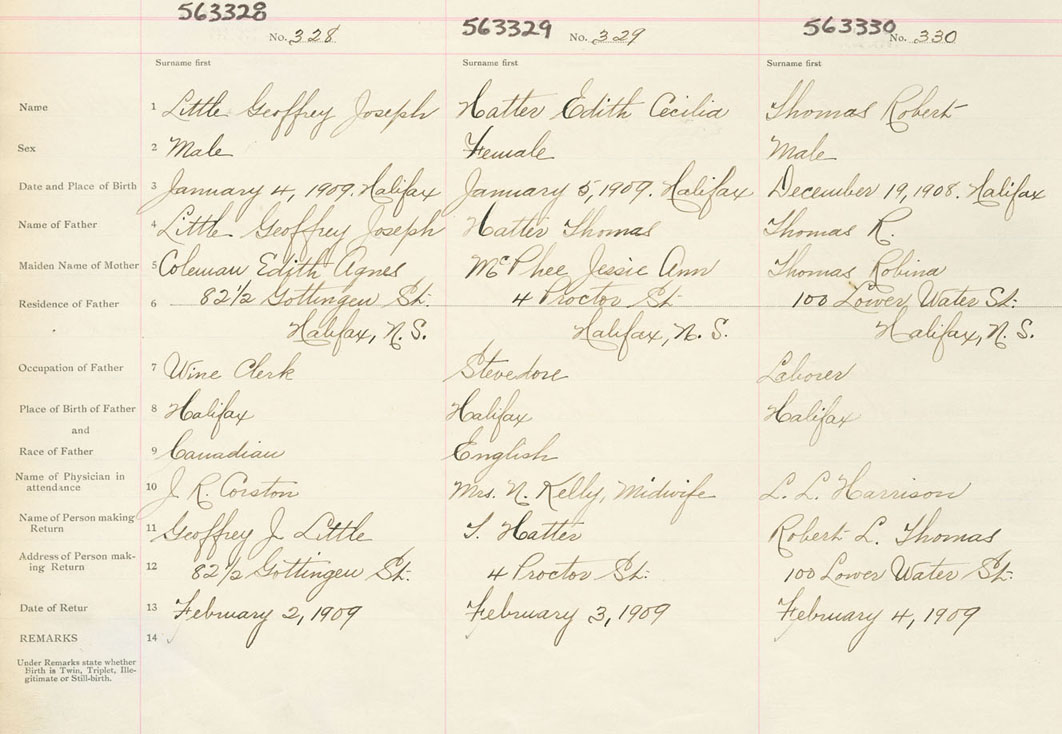 563328 563329 563330
No. 328 No. 329 No. 330
Surname first Surname first Surname first
Name 1 Little Geoffrey Joseph Hatter Edith Cecilia Thomas Robert
Sex 2 Male Female Male
Date and Place of Birth 3 January 4, 1909. Halifax January 5, 1909. Halifax December 19, 1908. Halifax
Name of Father 4 Little Geoffrey Joseph Hatter Thomas Thomas R.
Maiden Name of Mother 5 Coleman Edith Agnes McPhee Jessie Ann Thomas Robina
Residence of Father 6 82 1/2 Gottingen St. 4 Proctor St. 100 Lower Water St.
Halifax, N.S. Halifax, N.S. Halifax, N.S.
Occupation of Father 7 Wine Clerk Stevedore Laborer
Place of Birth of Father 8 Halifax Halifax Halifax
and
Race of Father 9 Canadian English
Name of Physician in
attendance 10 J. R. Corston Mrs. N. Kelly, Midwife L. L. Harrison
Name of Person making
Return 11 Geoffrey J Little T. Hatter Robert L. Thomas
Address of Person mak-
ing Return 12 82 1/2 Gottingen St. 4 Proctor St. 100 Lower Water St.
Date of Retur 13 February 2, 1909 February 3, 1909 February 4, 1909
REMARKS 14
Under Remarks state whether
Birth is Twin, Triplet, Ille-
gitimate or Still-birth.